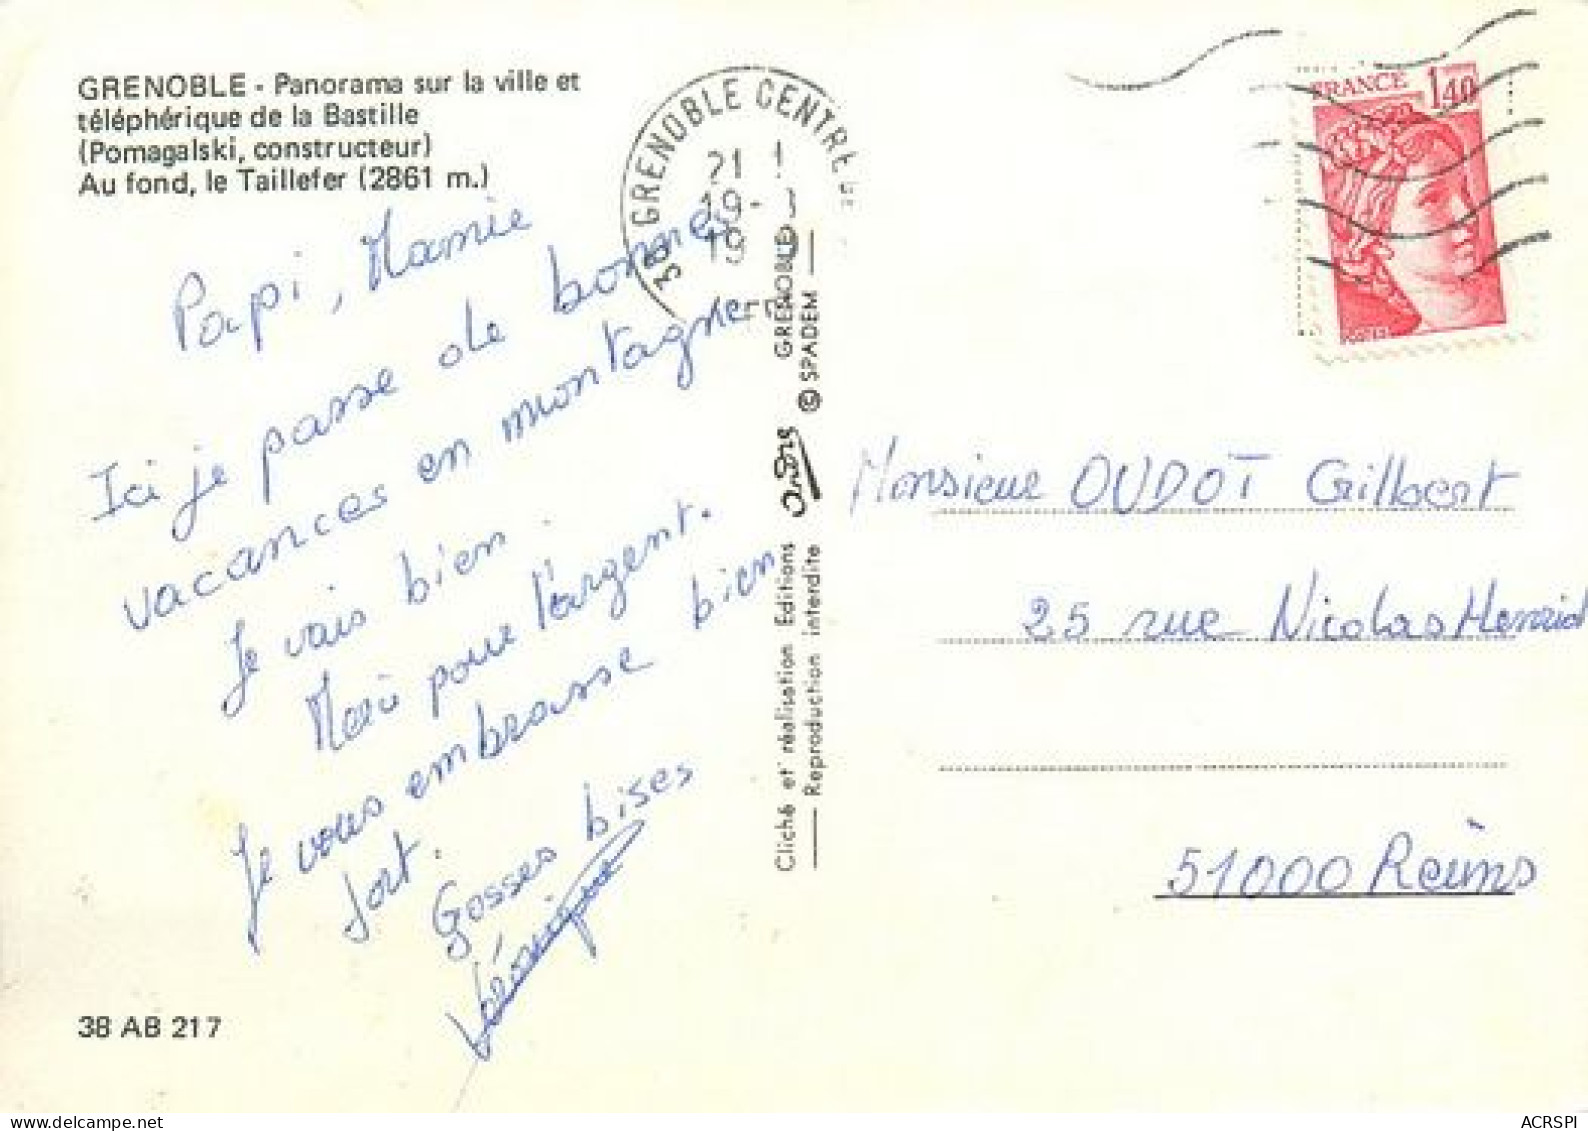 GRENOBLE - Panorama sur la ville et
téléphérique de la Bastille
(Pomagalski, constructeur)
Au fond, le Taillefer (2861 m.)
Papi, Mamie
Ici je passe de bonnes
vacances en montagne
Je vais bien.
Merci pour l'argent.
Je vous embrasse bien
fort.
Gosses bises
Véronique
38 AB 217
38 GRENOBLE CENTRE
21
19-
19
Cliché et réalisation Editions André GRENOBLE
Reproduction interdite © SPADEM
FRANCE 1,40
Monsieur OUDOT Gilbert
25 rue Nicolas Henriot
51000 Reims
ACRSPI